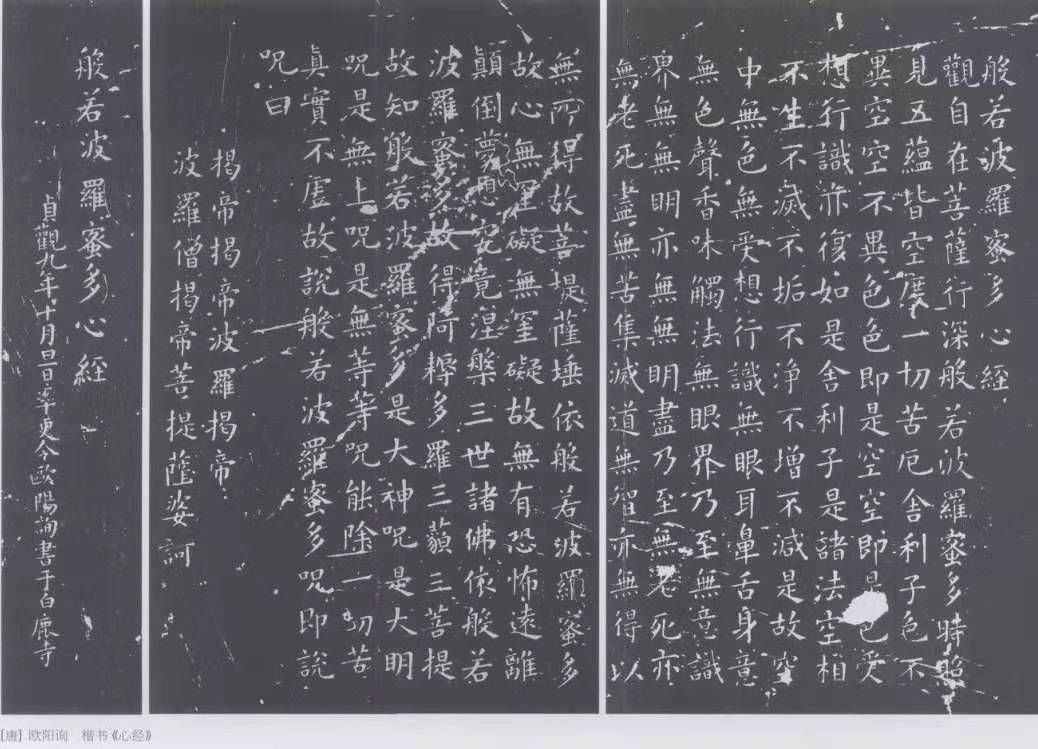 般若波羅蜜多心經
觀自在菩薩行深般若波羅蜜多時照
見五蘊皆空度一切苦厄舍利子色不
異空空不異色色即是空空即是色受
想行識亦復如是舍利子是諸法空相
不生不滅不垢不淨不增不減是故空
中無色無受想行識無眼耳鼻舌身意
無色聲香味觸法無眼界乃至無意識
界無無明亦無無明盡乃至無老死亦
無老死盡無苦集滅道無智亦無得以
無所得故菩堤薩埵依般若波羅蜜多
故心無罣礙無罣礙故無有恐怖遠離
顛倒夢想究竟涅槃三世諸佛依般若
波羅蜜多故得阿耨多羅三藐三菩提
故知般若波羅蜜多是大神咒是大明
咒是無上咒是無等等咒能除一切苦
真實不虛故說般若波羅蜜多咒即說
咒曰
揭帝揭帝波羅揭帝
波羅僧揭帝菩提薩婆訶
般若波羅蜜多心經
貞觀九年十月旦日率更令歐陽詢書于白鹿寺
[唐] 欧阳询 楷书《心经》